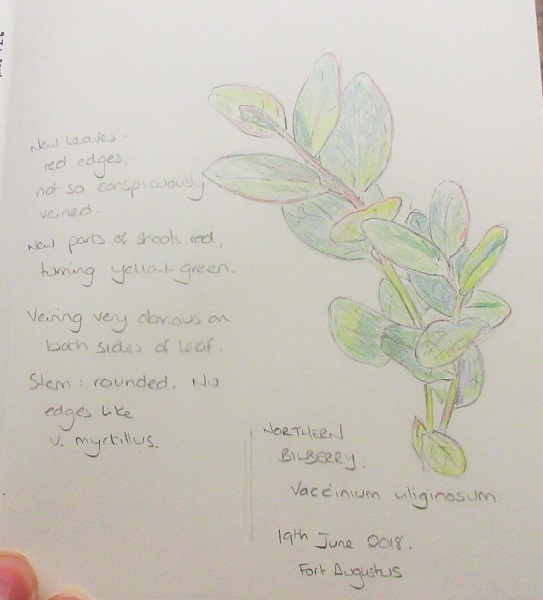 New Leaves -
red edges,
not so conspicuously
veined.
New parts of shoots red,
turning yellowt green.
Veining very obvious on
both sides of leaf.
Stem: rounded. No
edges like
v. myrtillus.
NORTHERN
BILBERRY.
Vaccinium uliginosum.
19th June 2018.
Fort Augustus